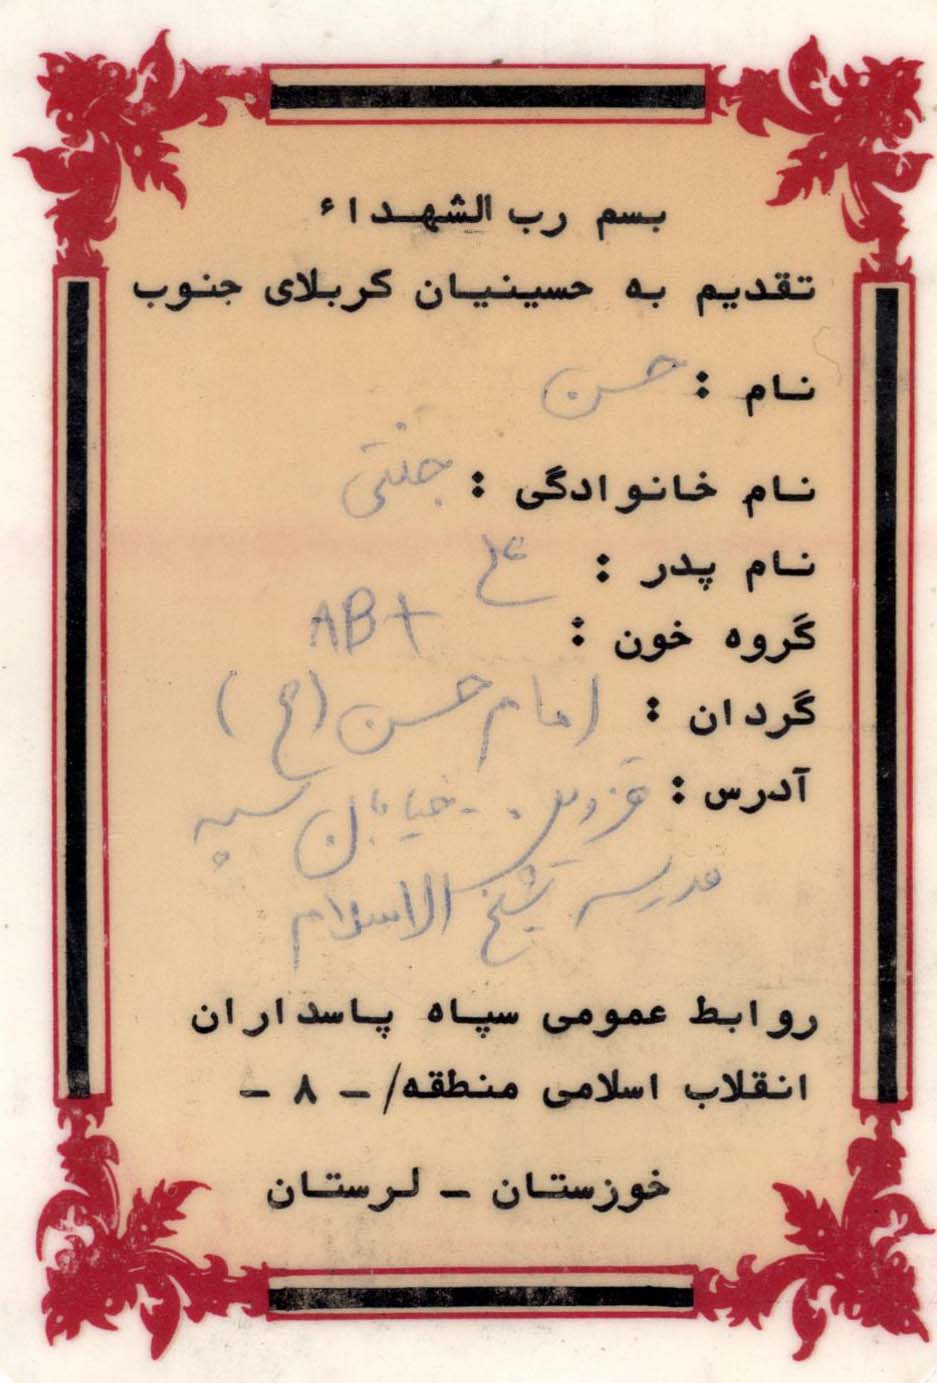 بسم رب الشهداء
تقدیم به حسینیان کربلای جنوب
نام : حسن
نام خانوادگی : جنتی
نام پدر : علی
گروه خون : AB+
گردان : امام حسن (ع)
آدرس : قزوین - خیابان سپه
مدرسه شیخ الاسلام
روابط عمومی سپاه پاسداران
انقلاب اسلامی منطقه/ - ۸ -
خوزستان - لرستان